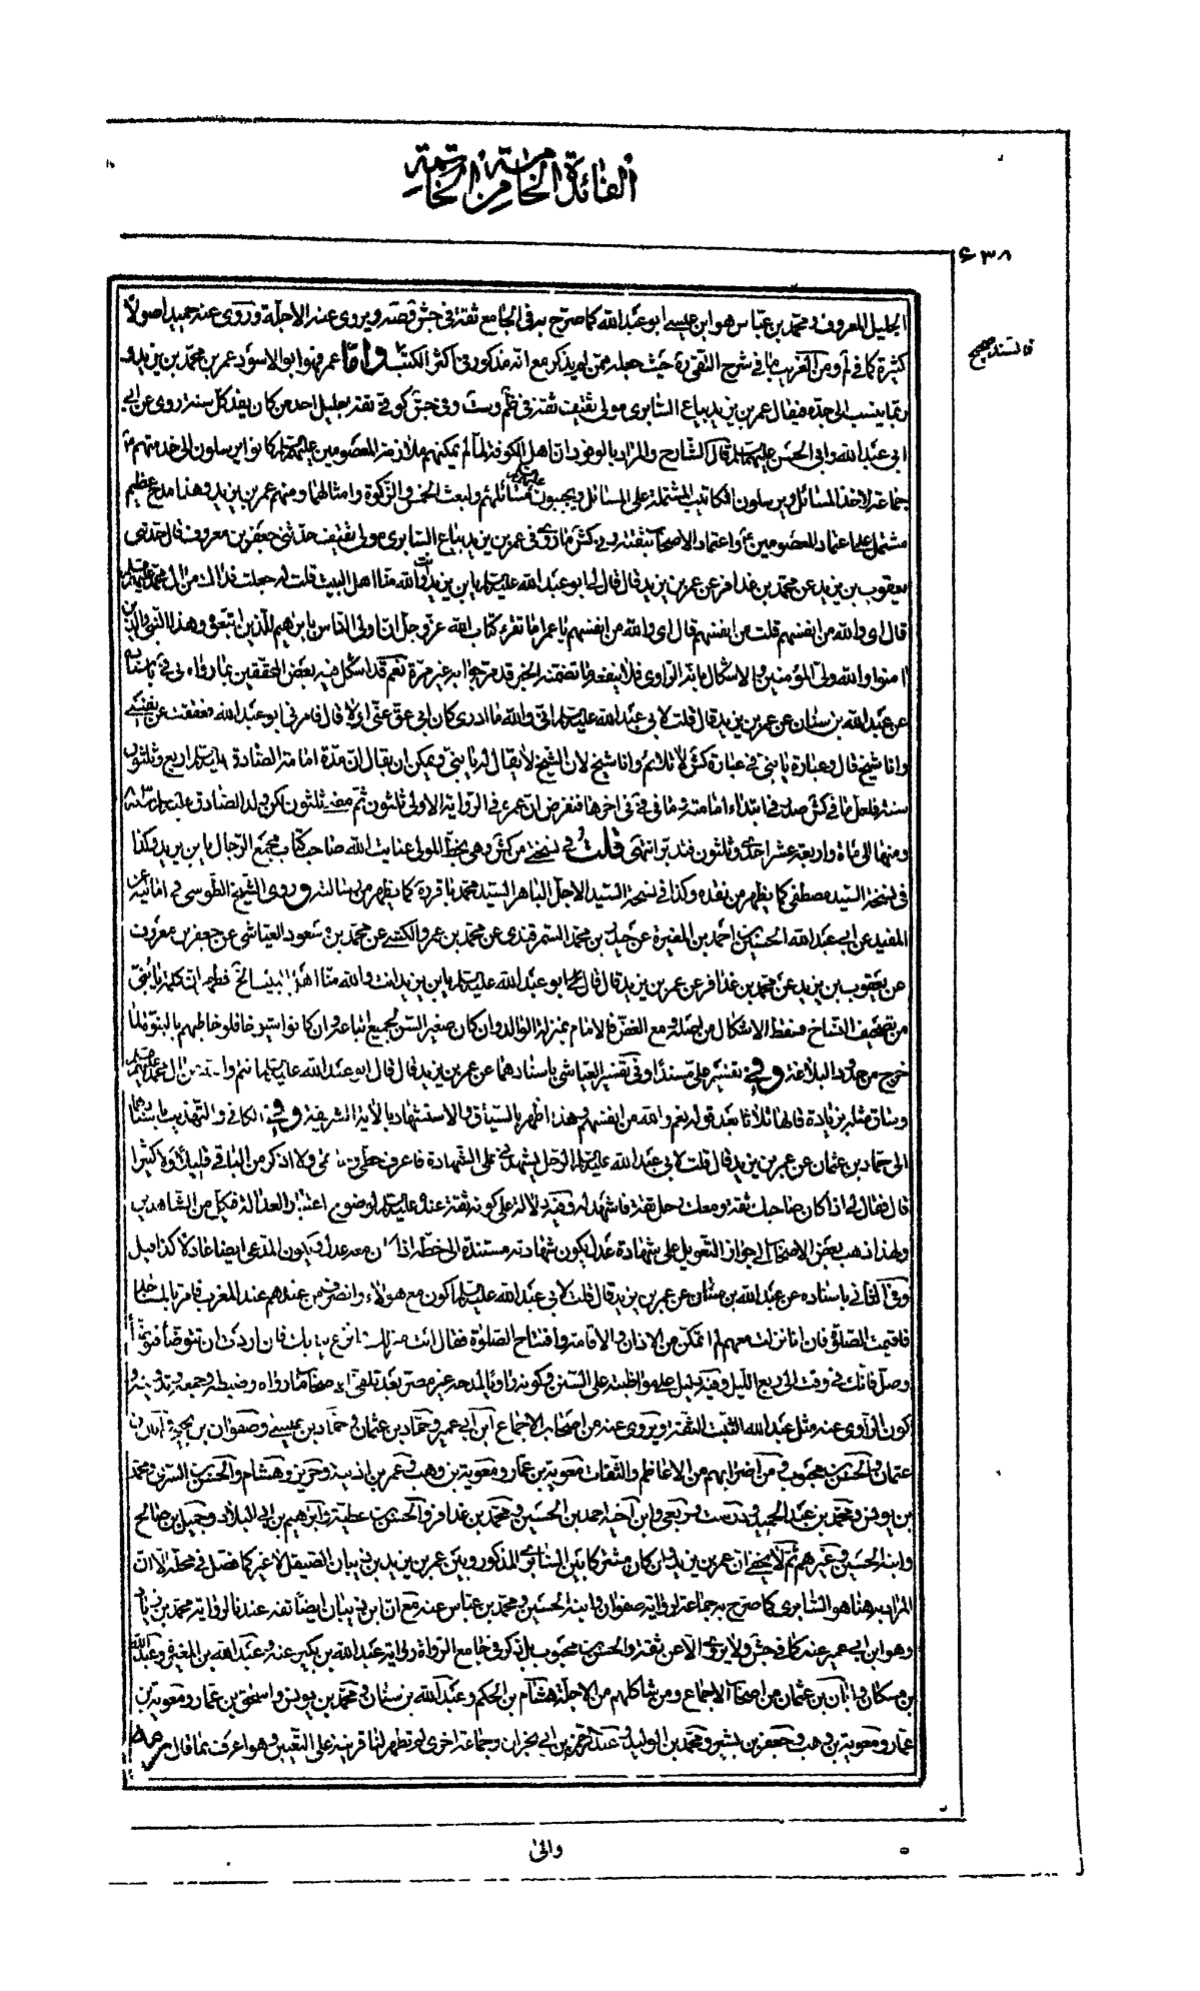 الفائدة الخامسة من الخاتمة
٦٣٨
فالسند صحيح
الجليل المعروف ومحمد بن عباس هو ابن عيسى ابو عبد الله كما صرح به في الجامع ثقة في جش وصه ويروى عنه الاجلة وروى عنه حميد اصولا
كثيرة كما في لم ومن الغريب ما في شرح التقى ره حيث جعله ممن لم يذكر مع انه مذكور في اكثر الكتب واما عمر فهو ابو الاسود عمر بن محمد بن يزيد و
ربما ينسب الى جده فيقال عمر بن يزيد بياع السابرى مولى ثقيف ثقة في ظم وست وفي جش كوفى ثقة جليل احد من كان يفد كل سنة روى عن ابى
ابى عبد الله وابى الحسن عليهما السلم قال الشارح والمراد بالوفود ان اهل الكوفة لما لم يمكنهم ملازمة المعصومين عليهم السلم كانوا يرسلون الى خدمتهم
جماعة لاخذ المسائل ويرسلون المكاتيب المشتملة على المسائل ويجيبون مسائلهم ولبعث الخمس والزكوة وامثالهما ومنهم عمر بن يزيد وهذا مدح عظيم
مشتمل على اعتماد المعصومين واعتماد الاصحاب بثقته وفي كش ما روى في عمر بن يزيد بياع السابرى مولى ثقيف حدثنى جعفر بن معروف قال حدثنى
يعقوب بن يزيد عن محمد بن عذافر عن عمر بن يزيد قال قال لى ابو عبد الله عليه السلم يا بن يزيد انت والله منا اهل البيت قلت له جعلت فداك من ال محمد
قال اى والله من انفسهم قلت من انفسهم قال اى والله من انفسهم يا عمر اما تقرء كتاب الله عز وجل ان اولى الناس بابرهيم للذين اتبعوه وهذا النبى والذين
امنوا والله ولى المؤمنين والاشكال بانه الراوى فلا ينفعه ما تضمنه الخبر قد مر جوابه غير مرة نعم قد استشكل فيه بعض المحققين بما رواه في في باسناده
عن عبد الله بن سنان عن عمر بن يزيد قال قلت لابى عبد الله عليه السلم انى والله ما ادرى كان ابى عق عنى ام لا قال فامرنى ابو عبد الله فعققت عن نفسى
وانا شيخ قال وعبارة يا بنى في عبارة كش لا تلائم وانا شيخ لان الشيخ لا يقال له يا بنى ويمكن ان يقال ان مدة امامة الصادق عليه السلم اربع وثلثون
سنة فلعل ما في كش صدر في ابتداء امامته وما في في في اخرها فنفرض ان عمره في الرواية الاولى ثلثون ثم مضى ثلثون
ومنها الى مائة واربعة عشر احدى وثلثون فتدبر انتهى قلت في نسختى من كش وهي بخط المولى عناية الله صاحب كتاب مجمع الرجال يا بن يزيد وكذا
في نسخة السيد مصطفى كما يظهر من نقده وكذا في نسخة السيد الاجل الباهر السيد محمد باقر ره كما يظهر من رسالته وروى الشيخ الطوسى في اماليه عن
المفيد عن ابى عبد الله الحسين بن احمد بن المغيرة عن حيدر بن محمد السمرقندى عن محمد بن عمرو الكشى عن محمد بن مسعود العياشى عن جعفر بن معروف
عن يعقوب بن يزيد عن محمد بن عذافر عن عمر بن يزيد قال قال لى ابو عبد الله عليه السلم يا بن يزيد انت والله منا اهل البيت الخ فظهر ان كلمة يا بنى
من تصحيف النساخ فسقط الاشكال من اصله ومع الغض فالامام بمنزلة الوالد وان كان صغير السن لجميع اتباعه وان كانوا شيوخا فلو خاطبهم بالبنوة لما
خرج من حدود البلاغة وفي تفسير على مسندا وفي تفسير العياشى باسنادهما عن عمر بن يزيد قال قال ابو عبد الله عليه السلم انتم والله من ال محمد
وساق مثله بزيادة قالها ثلاثا بعد قوله نعم والله من انفسهم وهذا اظهر بالسياق والاستشهاد بالاية الشريفة وفي الكافى والتهذيب باسنادهما
الى حماد بن عثمان عن عمر بن يزيد قال قلت لابى عبد الله عليه السلم الرجل يشهدنى على الشهادة فاعرف خطى وخاتمى ولا اذكر من الباقى قليلا ولا كثيرا
قال فقال لى اذا كان صاحبك ثقة ومعك رجل ثقة فاشهد له وفيه دلالة على كونه ثقة عنده عليه السلم لوضوح اعتبار العدالة في كل من الشاهدين
ولهذا ذهب بعض الاصحاب الى جواز التعويل على شهادة عدل يكون شهادته مستندة الى خطه اذا كان معه عدل ويكون المدعى ايضا عادلا كذا قيل
وفي الكافى باسناده عن عبد الله بن سنان عن عمر بن يزيد قال قلت لابى عبد الله عليه السلم اكون مع هؤلاء وانصرف من عندهم عند المغرب فامر بالمساجد
فاقيمت الصلوة فان انا نزلت معهم لم اتمكن من الاذان والاقامة وافتتاح الصلوة فقال ائت منزلك وانزع ثيابك فان اردت ان تتوضأ فتوضأ
وصل فانك في وقت الى ربع الليل وفيه دليل على مواظبته على السنن وكونه راويا لمدحه غير مضر بعد تلقى الاصحاب ما رواه وضبطه وجمعه وتدوينه و
كون الراوى عنه مثل عبد الله الثبت الثقة ويروى عنه من اصحاب الاجماع ابن ابى عمير وحماد بن عثمان وحماد بن عيسى وصفوان بن يحيى وابان بن
عثمان والحسن بن محبوب ومن اضرابهم من الاعاظم والثقات معوية بن عمار ومعوية بن وهب وعمر بن اذينة وحريز وهشام والحسن بن السرى ومحمد
بن يونس ومحمد بن عبد الحميد ودرست وربعى وابن اخيه احمد بن الحسين ومحمد بن عذافر والحسن بن عطية وابرهيم بن ابى البلاد وجميل بن صالح
وابنه الحسين وغيرهم ثم لا يخفى ان عمر بن يزيد وان كان مشتركا بين السابرى المذكور وبين عمر بن يزيد بن ذبيان الصيقل لا غير كما فصل في محله الا ان
المراد به هنا هو السابرى كما صرح به جماعة لرواية صفوان وابنه الحسين ومحمد بن عباس عنه مع ان ابن ذبيان ايضا ثقة عندنا لرواية محمد بن زياد
وهو ابن ابى عمير عنه كما في جش ولا يروى الا عن ثقة والحسن بن محبوب بل ذكر في جامع الرواة رواية عبد الله بن بكير عنه وعبد الله بن المغيرة وعبد الله
بن مسكان وابان بن عثمان من اصحاب الاجماع ومن شاكلهم من الاجلة هشام بن الحكم وعبد الله بن سنان ومحمد بن يونس واسحق بن عمار ومعوية بن
عمار ومعوية بن وهب وجعفر بن بشير ومحمد بن الوليد وعبد الرحمن بن ابى نجران وجماعة اخرى لم تظهر لنا قرينة على التعيين وهو اعرف بما قال رحمه الله
والى